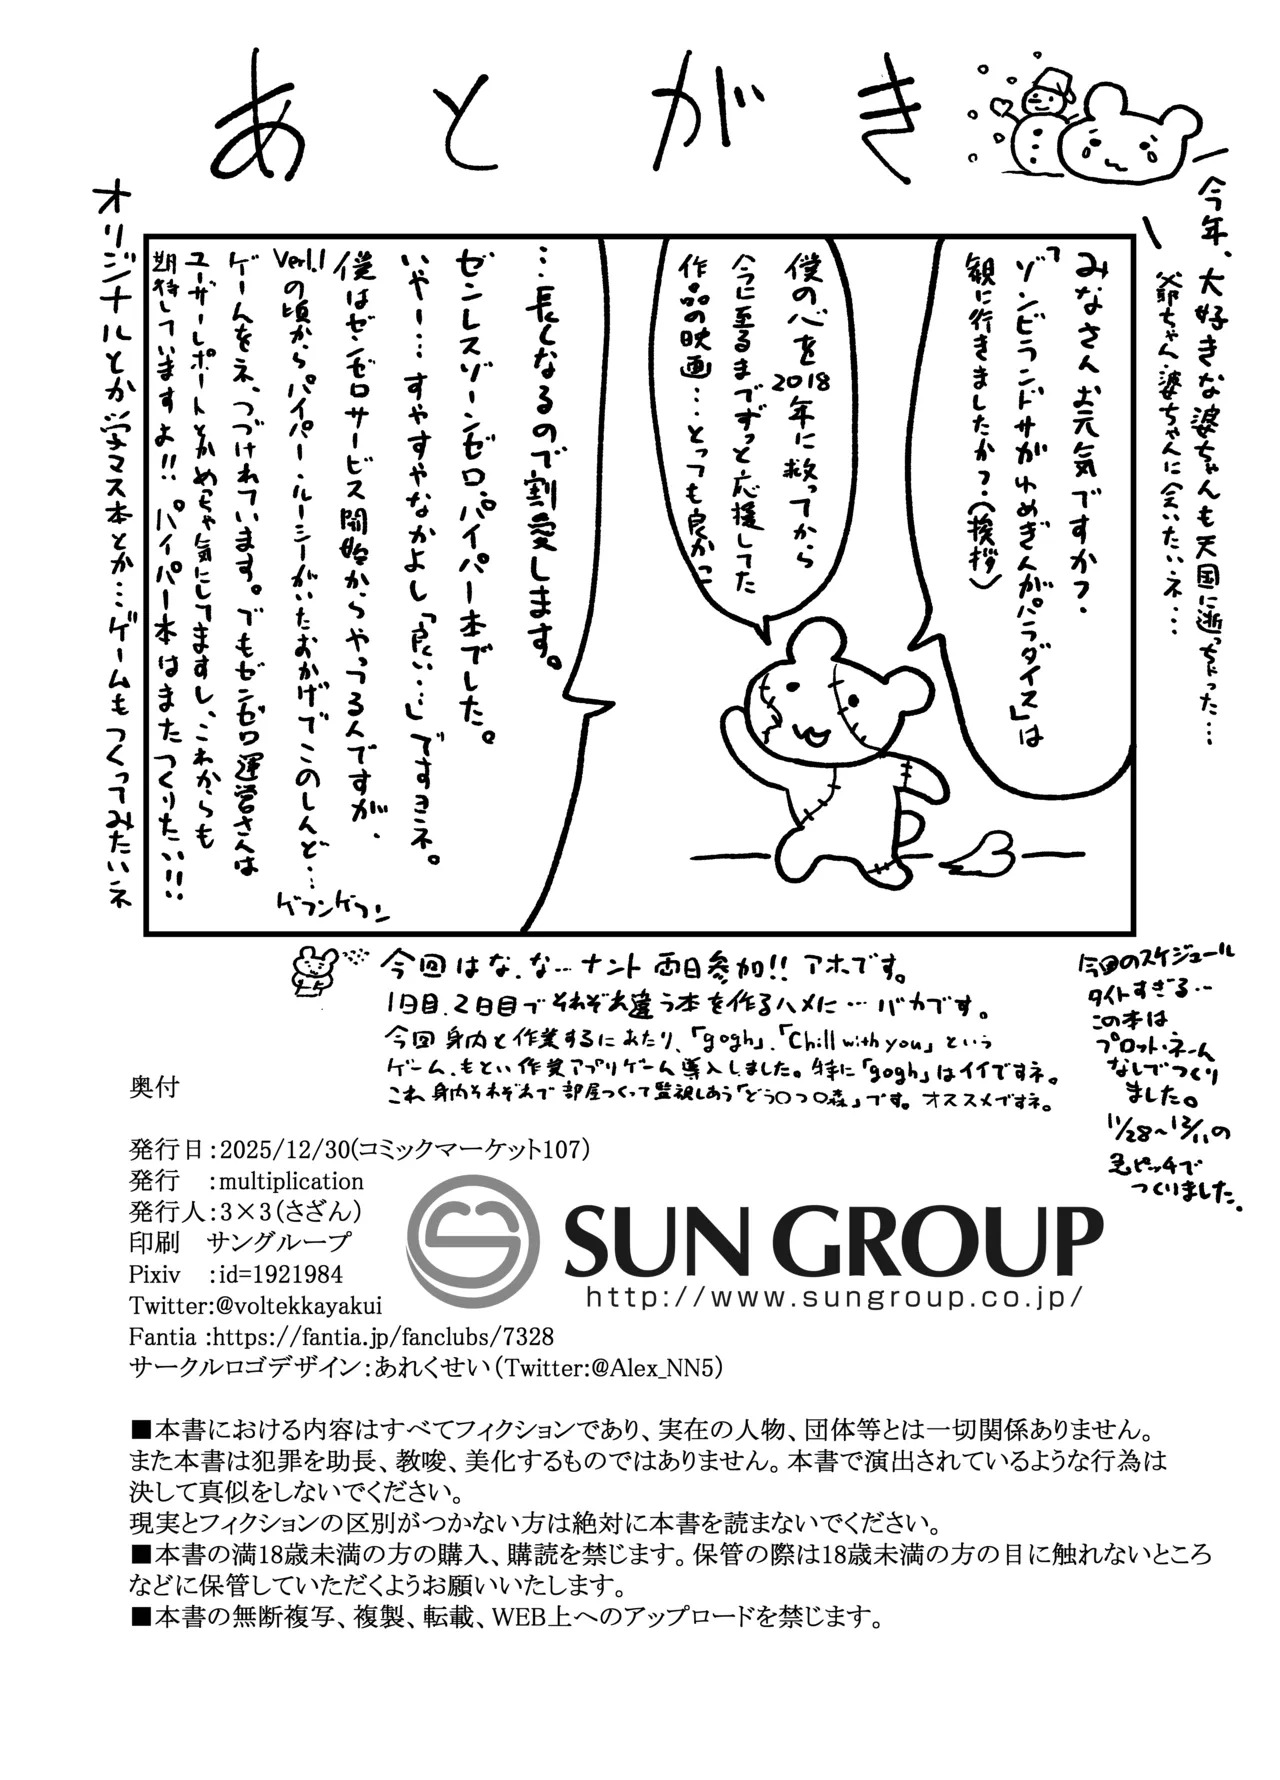 あとがき
今年、大好きな婆ちゃんも天国に逝っちゃった…
爺ちゃん・婆ちゃんに会いたいネ…
みなさんお元気ですか？
「ゾンビランドサガゆめぎんがパラダイス」は
観に行きましたか？(挨拶)
僕の心を2018年に救ってから
今に至るまでずっと応援してた
作品の映画…とっても良かっ
…長くなるので割愛します。
ゼンレスゾーンゼロ、パイパー本でした。
いやー…すやすやなかよし「良い…」ですヨネ。
僕はゼンゼロサービス開始からやってる人ですが、
Ver1.1の頃からパイパー・ルーシーがいたおかげでこのしんど…
ゲフンゲフン
ゲームをネ、つづけれています。でもゼンゼロ運営さんは
ユーザーレポートとかめっちゃ気にしてますし、これからも
期待していますよ!!パイパー本はまたつくりたい!!
オリジナルとか学マス本とか…ゲームもつくってみたいネ
今回はな、な…ナント両日参加!!アホです。
1日目、2日目でそれぞれ違う本を作るハメに…バカです。
今回身内と作業するにあたり、「gogh」、「Chill with you」という
ゲーム、もとい作業アプリゲーム導入しました。特に「gogh」はイイですネ。
これ身内それぞれで部屋つくって監視しあう「どう〇つ〇森」です。オススメですネ。
今回のスケジュール
タイトすぎる…
この本は
プロット・ネーム
なしでつくり
ました。
11/28～12/11の
急ピッチで
つくりました。
奥付
発行日：2025/12/30(コミックマーケット107)
発行　：multiplication
発行人：3×3（さざん）
印刷　サングループ
Pixiv　：id=1921984
Twitter:@voltekkayakui
Fantia :https://fantia.jp/fanclubs/7328
サークルロゴデザイン：あれくせい（Twitter:@Alex_NN5）
SUN GROUP
http://www.sungroup.co.jp/
■本書における内容はすべてフィクションであり、実在の人物、団体等とは一切関係ありません。
また本書は犯罪を助長、教唆、美化するものではありません。本書で演出されているような行為は
決して真似をしないでください。
現実とフィクションの区別がつかない方は絶対に本書を読まないでください。
■本書の満18歳未満の方の購入、購読を禁じます。保管の際は18歳未満の方の目に触れないところ
などに保管していただくようお願いいたします。
■本書の無断複写、複製、転載、WEB上へのアップロードを禁じます。